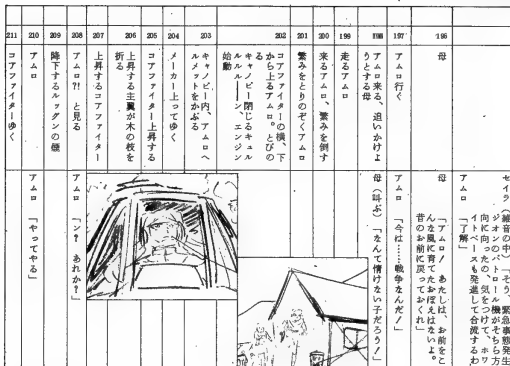 セイラ（雑音の中）「そう、緊急事態発生
ジオンのパトロール機がそちら方
向に向ったの、気をつけて、ホワ
イトベースも発進して合流するわ
アムロ 「了解」
195
母
母 「アムロ！ あたしは、お前をこ
んな風に育てたおぼえはないよ。
昔のお前に戻っておくれ」
197
アムロ行く
アムロ 「今は……戦争なんだ！」
198
アムロ来る、追いかけよ
うとする母
母（叫ぶ）「なんて情けない子だろう！」
199
走るアムロ
200
来るアムロ、繁みを倒す
201
繁みをとりのぞくアムロ
202
コアファイターの横、下
から上るアムロ。とびの
る
キャノピー閉じるキュル
ルルル――ン、エンジン
始動
203
キャノピー内、アムロヘ
ルメットをかぶる
204
メーカー上ってゆく
205
コアファイター上昇する
206
上昇する主翼が木の枝を
折る
207
上昇するコアファイター
208
アムロ?! と見る
アムロ 「ン？ あれか？」
209
降下するルッグンの煙
210
アムロ
アムロ 「やってやる」
211
コアファイターゆく